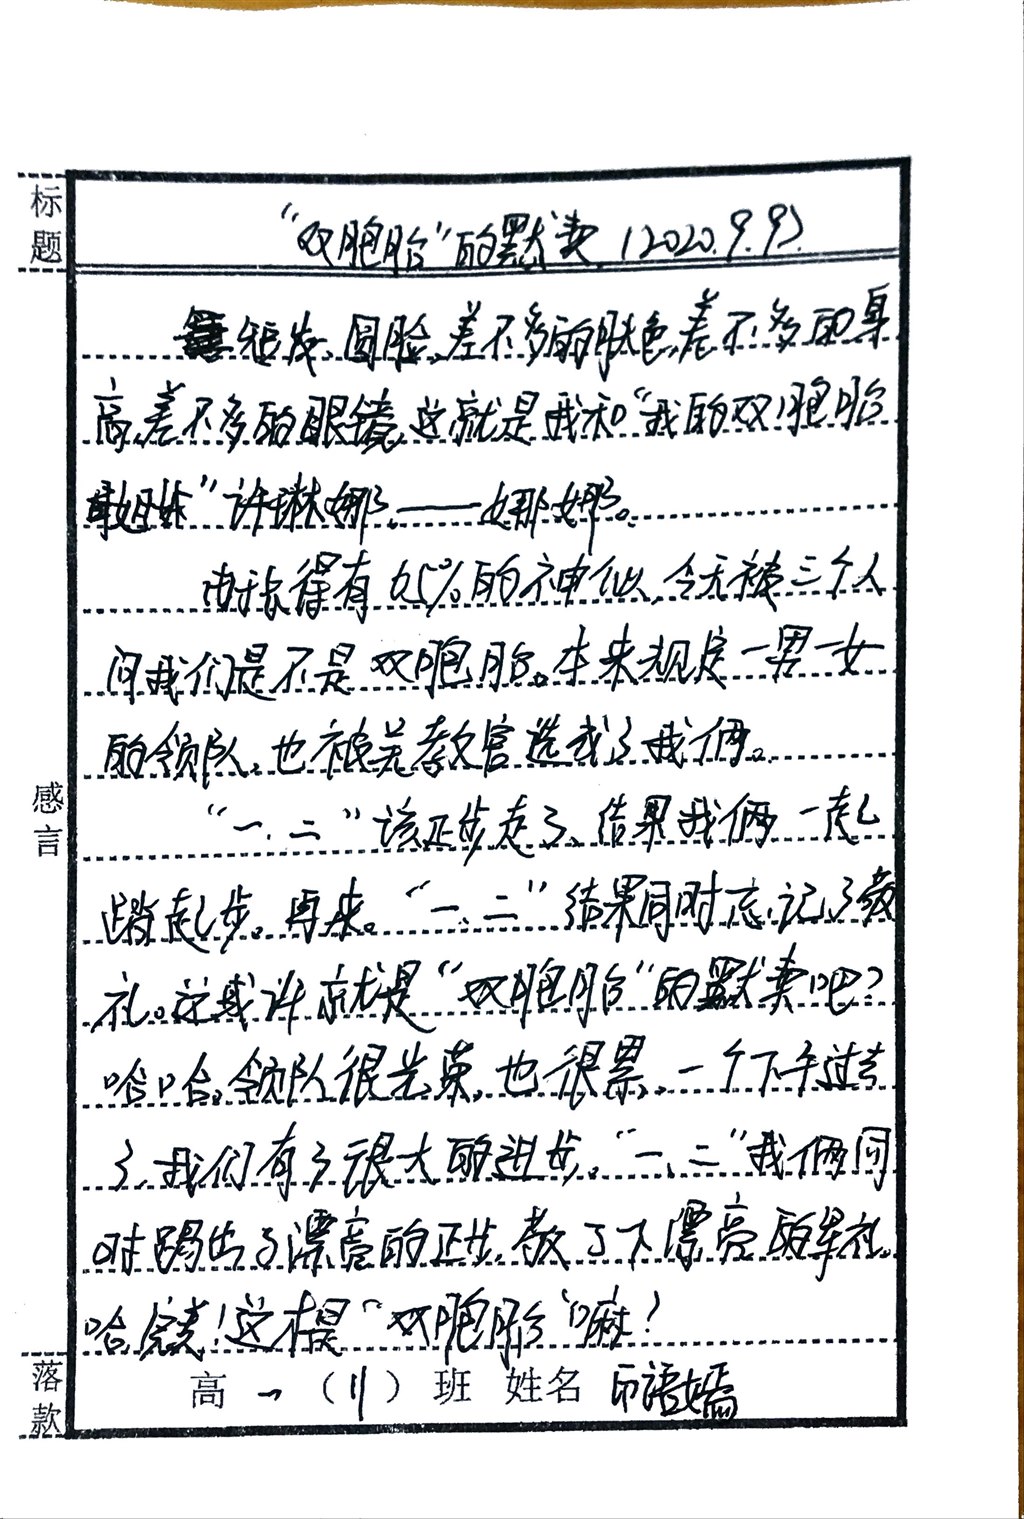 标题
"双胞胎"的默契 (2020.9.9)
短发、圆脸、差不多的肤色,差不多的身
高,差不多的眼镜,这就是我和"我的双胞胎
姐妹"许琳娜——娜娜。
由于长得有65%的神似,今天被三个人
问我们是不是双胞胎。本来规定一男一女
的领队,也被羌教官选我了我俩。
"一、二"该正步走了,结果我俩一起
踏起步。再来。"一、二"结果同时忘记了敬
礼。这或许就是"双胞胎"的默契吧?
哈哈。领队很光荣,也很累,一个下午过去
了,我们有了很大的进步。"一、二"我俩同
时踢出了漂亮的正步,敬了下漂亮的军礼。
哈,完美!这才是"双胞胎"嘛!
感言
落款
高一(11)班 姓名 邱语嫣